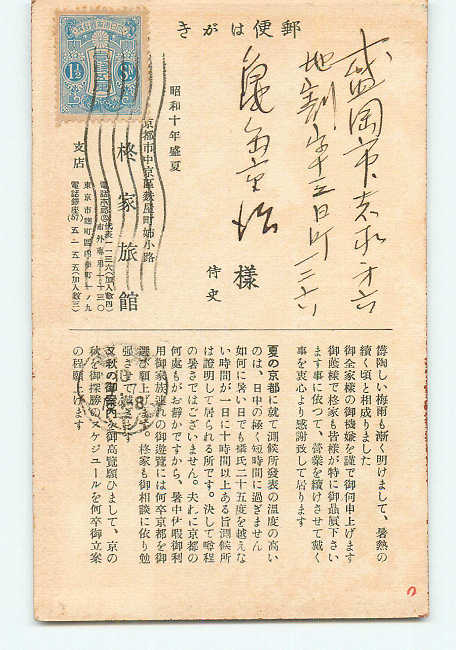 郵便はがき
1½
盛岡市
様
侍史
昭和十年盛夏
京都市中京區麩屋町姉小路
柊家旅館
支店
東京市麹町
欝陶しい梅雨も漸く明けまして、暑熱の
續く頃と相成りました
御全家様の御機嫌を謹で御伺申上げます
御蔭様で柊家も皆様が特に御贔屓下さい
ます事に依つて、營業を續けさせて戴く
事を衷心より感謝致して居ります
夏の京都に就て測候所發表の温度の高い
のは、日中の極く短時間に過ぎません
如何に暑い日でも攝氏二十五度を越えな
い時間が一日に十時間以上ある旨測候所
は證明して居られる所です。決して噂程
の暑さではございません。夫れに京都の
何處もがお靜かですから、暑中休暇御利
用御家族連れの御遊覧には何卒京都を御
選び願上げます。柊家も御相談に依り勉
強させて戴きます
又秋の御案内を御高覧願ひまして、京の
秋を御探勝のスケジュールを何卒御立案
の程願上げます